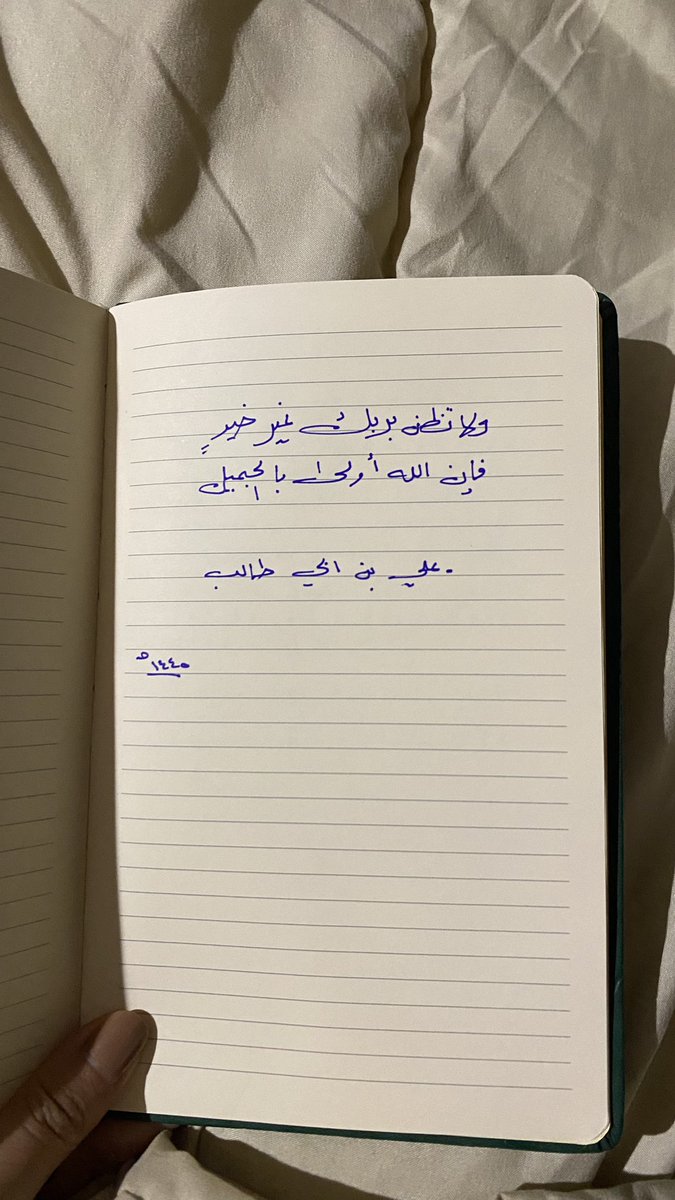 ولا تظن بربك غير خيرٍ
فإن الله أولى بالجميل
- علي بن ابي طالب
١٤٤٠ هـ